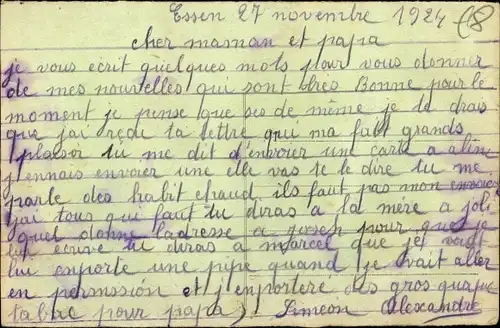 Essen 27 novembre 1924 (8
cher maman et papa
je vous ecrit quelques mots pour vous donner
de mes nouvelles qui sont très Bonne pour le
moment je pense que de même je te dirais
que j'ai reçue ta lettre qui ma fait grands
plaisir tu me dit d'envoier une carte a aline
j'ennais envoier une elle vas te le dire tu me
parle des habit chaud ils faut pas mon envoier
j'ai tous qui faut tu diras a la mère a joli
quel donne ladresse a pour que je
lui ecrive tu diras a marcel que je vait
lui enporte une pipe quand je vait aller
en permssion et j'enportere des gros
tabac pour papa) Simeon Alexandre